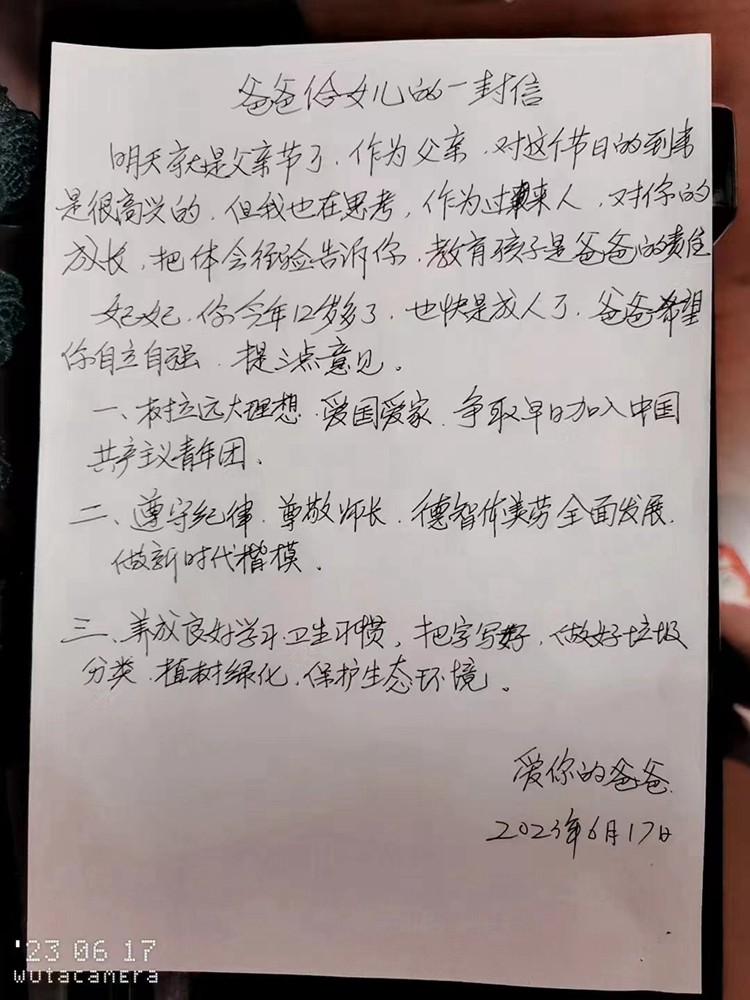 爸爸给女儿的一封信
明天就是父亲节了，作为父亲，对这个节日的到来
是很高兴的，但我也在思考，作为过来人，对你的
成长，把体会经验告诉你，教育孩子是爸爸的责任
妃妃，你今年12岁多了，也快是成人了，爸爸希望
你自立自强，提三点意见。
一、树立远大理想，爱国爱家，争取早日加入中国
共产主义青年团。
二、遵守纪律，尊敬师长，德智体美劳全面发展，
做新时代楷模。
三、养成良好学习卫生习惯，把字写好，做好垃圾
分类，植树绿化，保护生态环境。
爱你的爸爸
2023年6月17日
'23 06 17
wutacamera